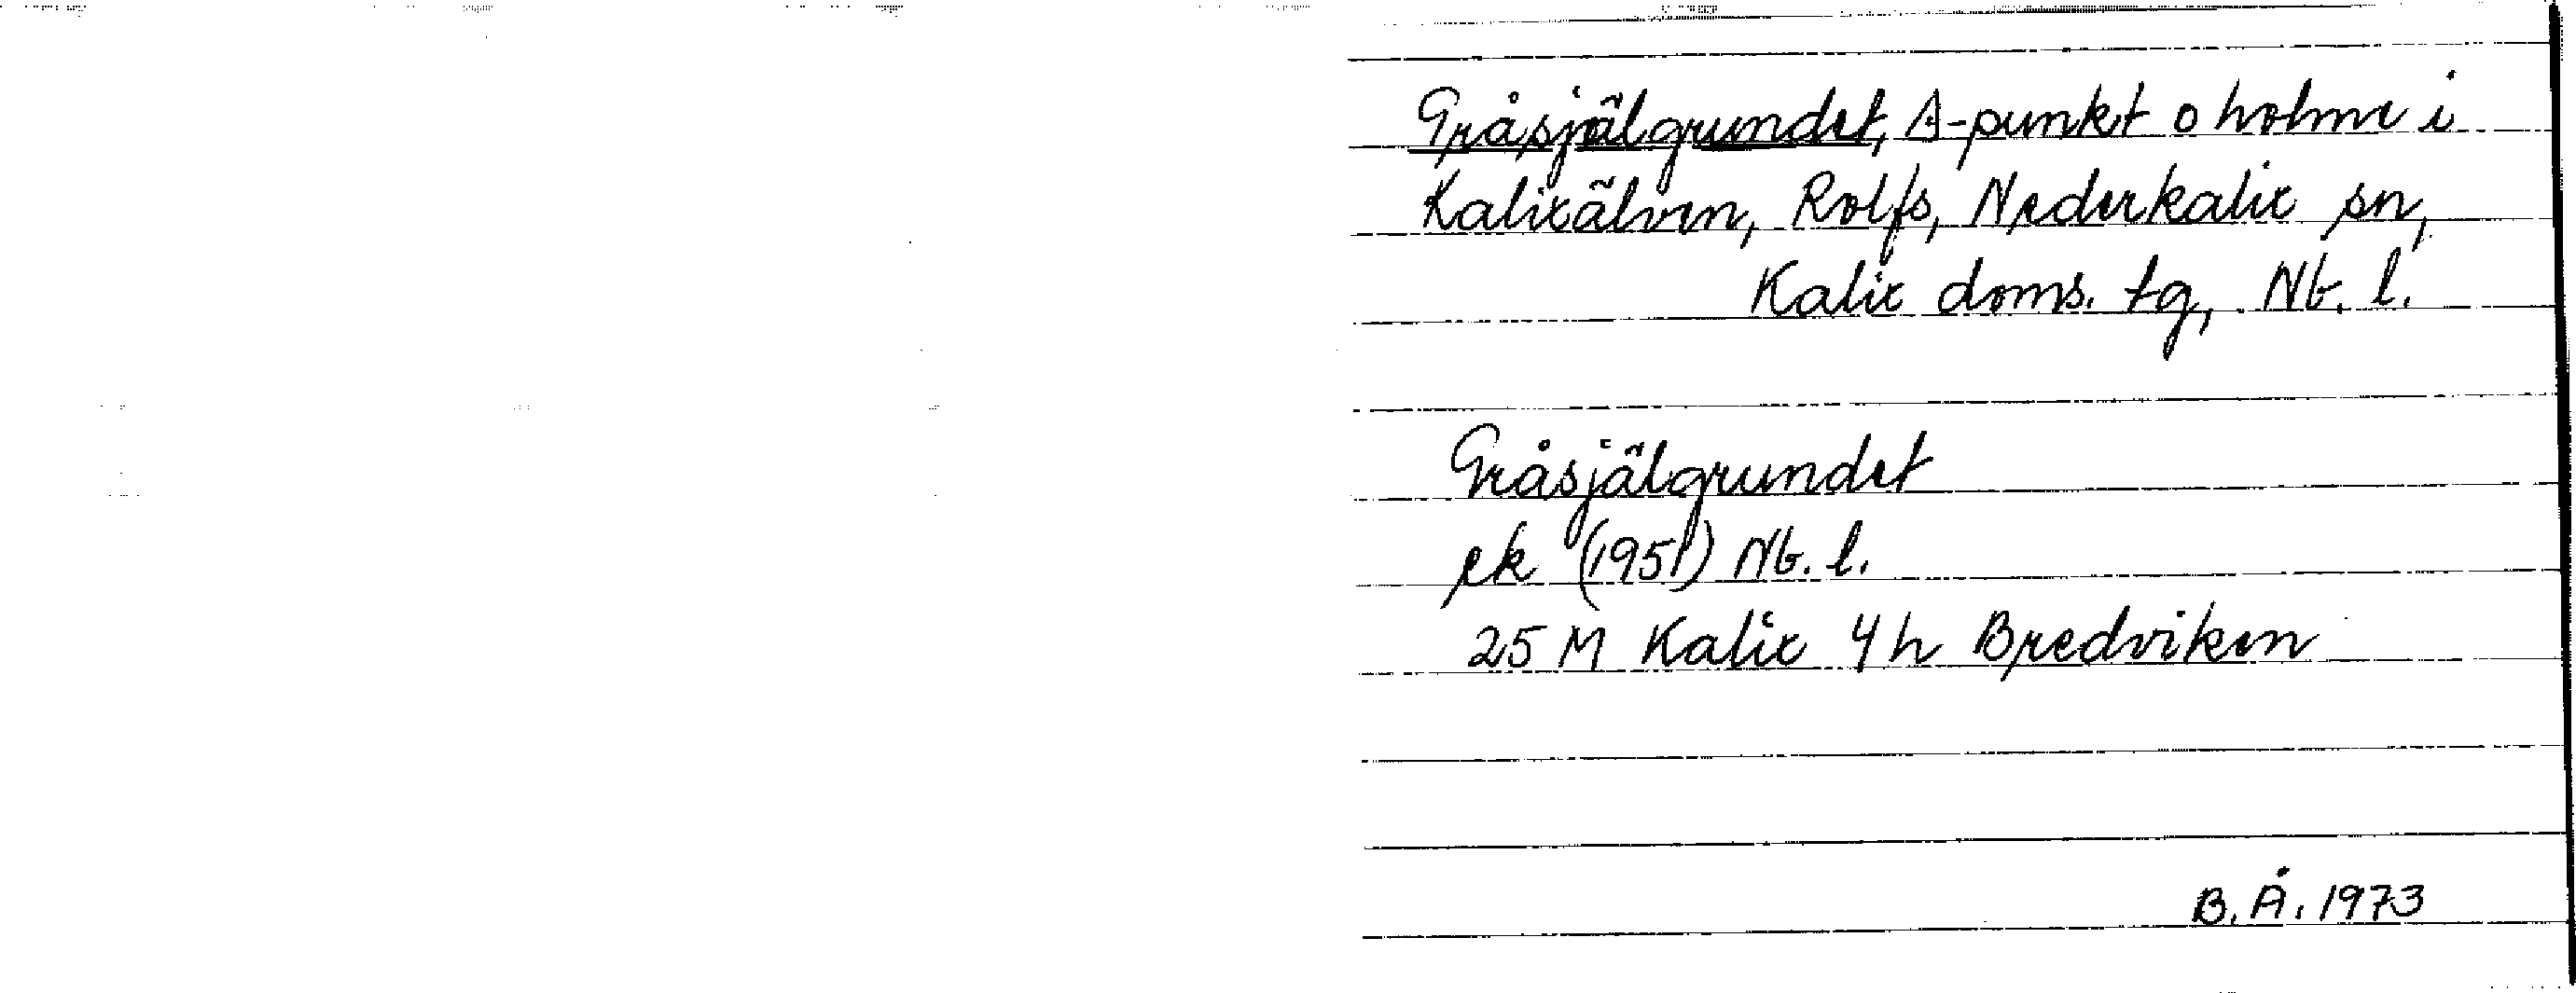 Gråsjälgrundet, Δ-punkt o holme i
Kalixälven, Rolfs, Nederkalix sn,
Kalix doms. tg, Nb. l.
Gråsjälgrundet
ek (1951) Nb. l.
25 M Kalix 4h Bredviken
B. Å. 1973